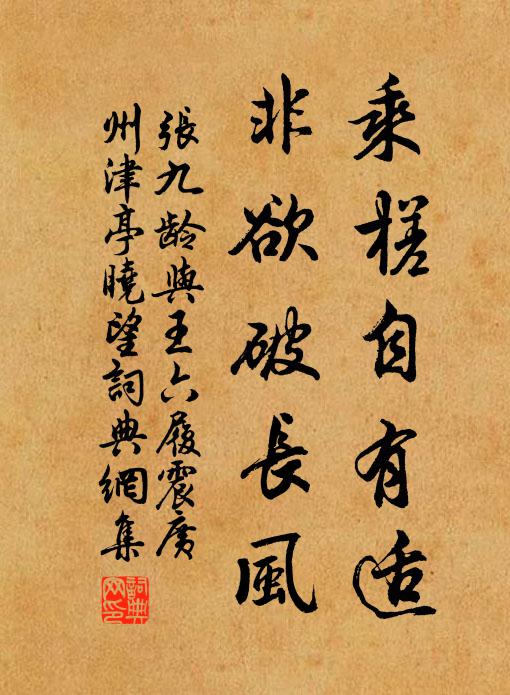 乘槎自有适
非欲破長風
張九龄與王六履震廣
州津亭曉望詞典網集
詞典网印